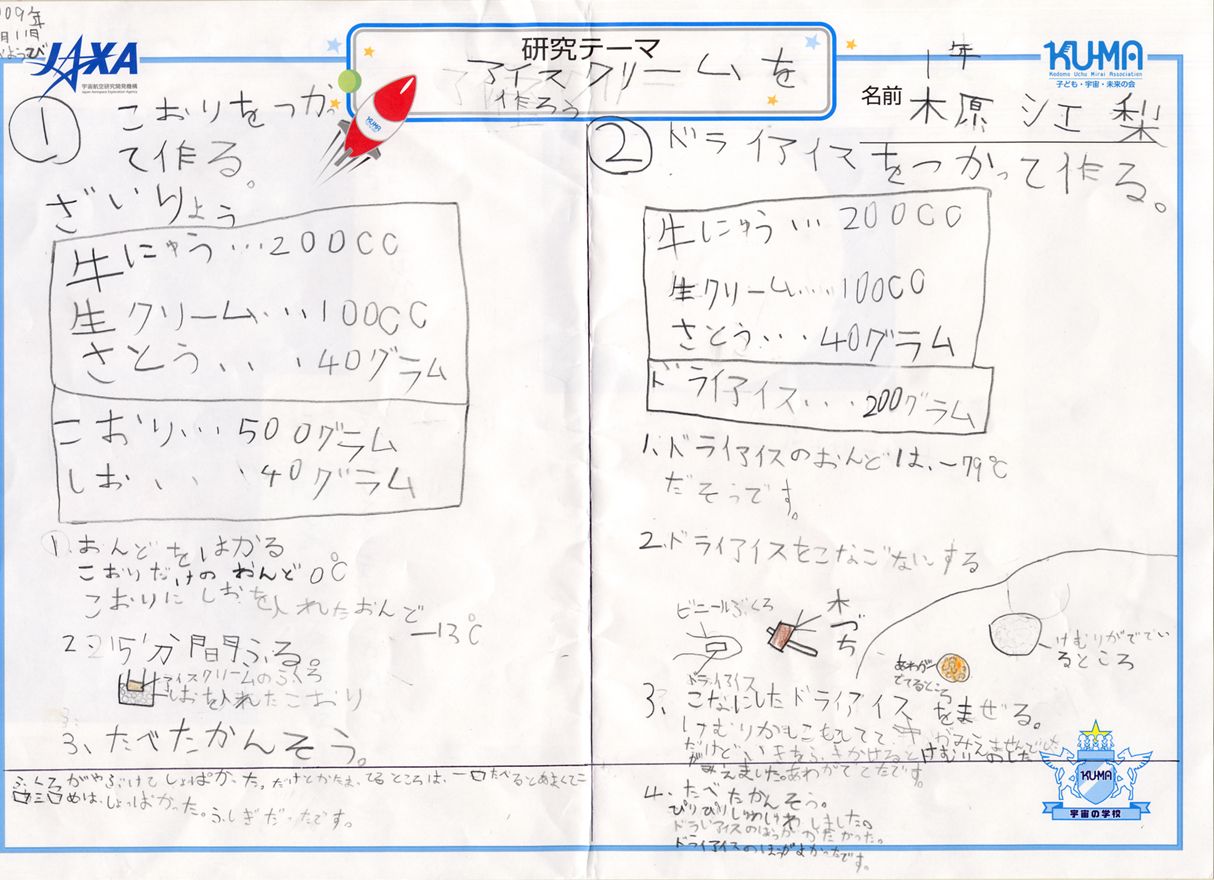 009年
月11日
JAXA
宇宙航空研究開発機構
Japan Aerospace Exploration Agency
研究テーマ
アイスクリームを
作ろう
KUMA
Kodomo Uchu Mirai Association
子ども・宇宙・未来の会
1年
名前 木原 シェ梨
KUMA
① こおりをつかっ
て作る。
ざいりょう
牛にゅう…200CC
生クリーム…100CC
さとう…・40グラム
こおり…500グラム
しお、、、40グラム
1.おんどをはかる
こおりだけのおんど0℃
こおりにしおを入れたおんど
-13℃
2 15分間ふる。
アイスクリームのふくろ
しおを入れたこおり
3、たべたかんそう。
ふくろがやぶけてしょぱかった。だけどかたまってるところは、一口たべるとあまくて二
口三口めは、しょっぱかった。ふしぎだったです。
② ドライアイスをつかって作る。
牛にゅう…200CC
生クリーム…100CC
さとう…・40グラム
ドライアイス...200グラム
1、ドライアイスのおんどは、-79℃
だそうです。
2.ドライアイスをこなごなにする
ビニールぶくろ
木づち
ドライアイス
けむりがでてい
るところ
あわが
でてるところ
3、こなにしたドライアイスをまぜる。
けむりがもこもこしてて がみえませんでした
だけど、いきをふきかけるとけむりのした
がみえました。あわがでてたです。
4、たべたかんそう。
ぴりぴりしゅわしゅわしました。
ドライアイスのほうがかたかった。
ドライアイスのほうがよかったです。
KUMA
宇宙の学校